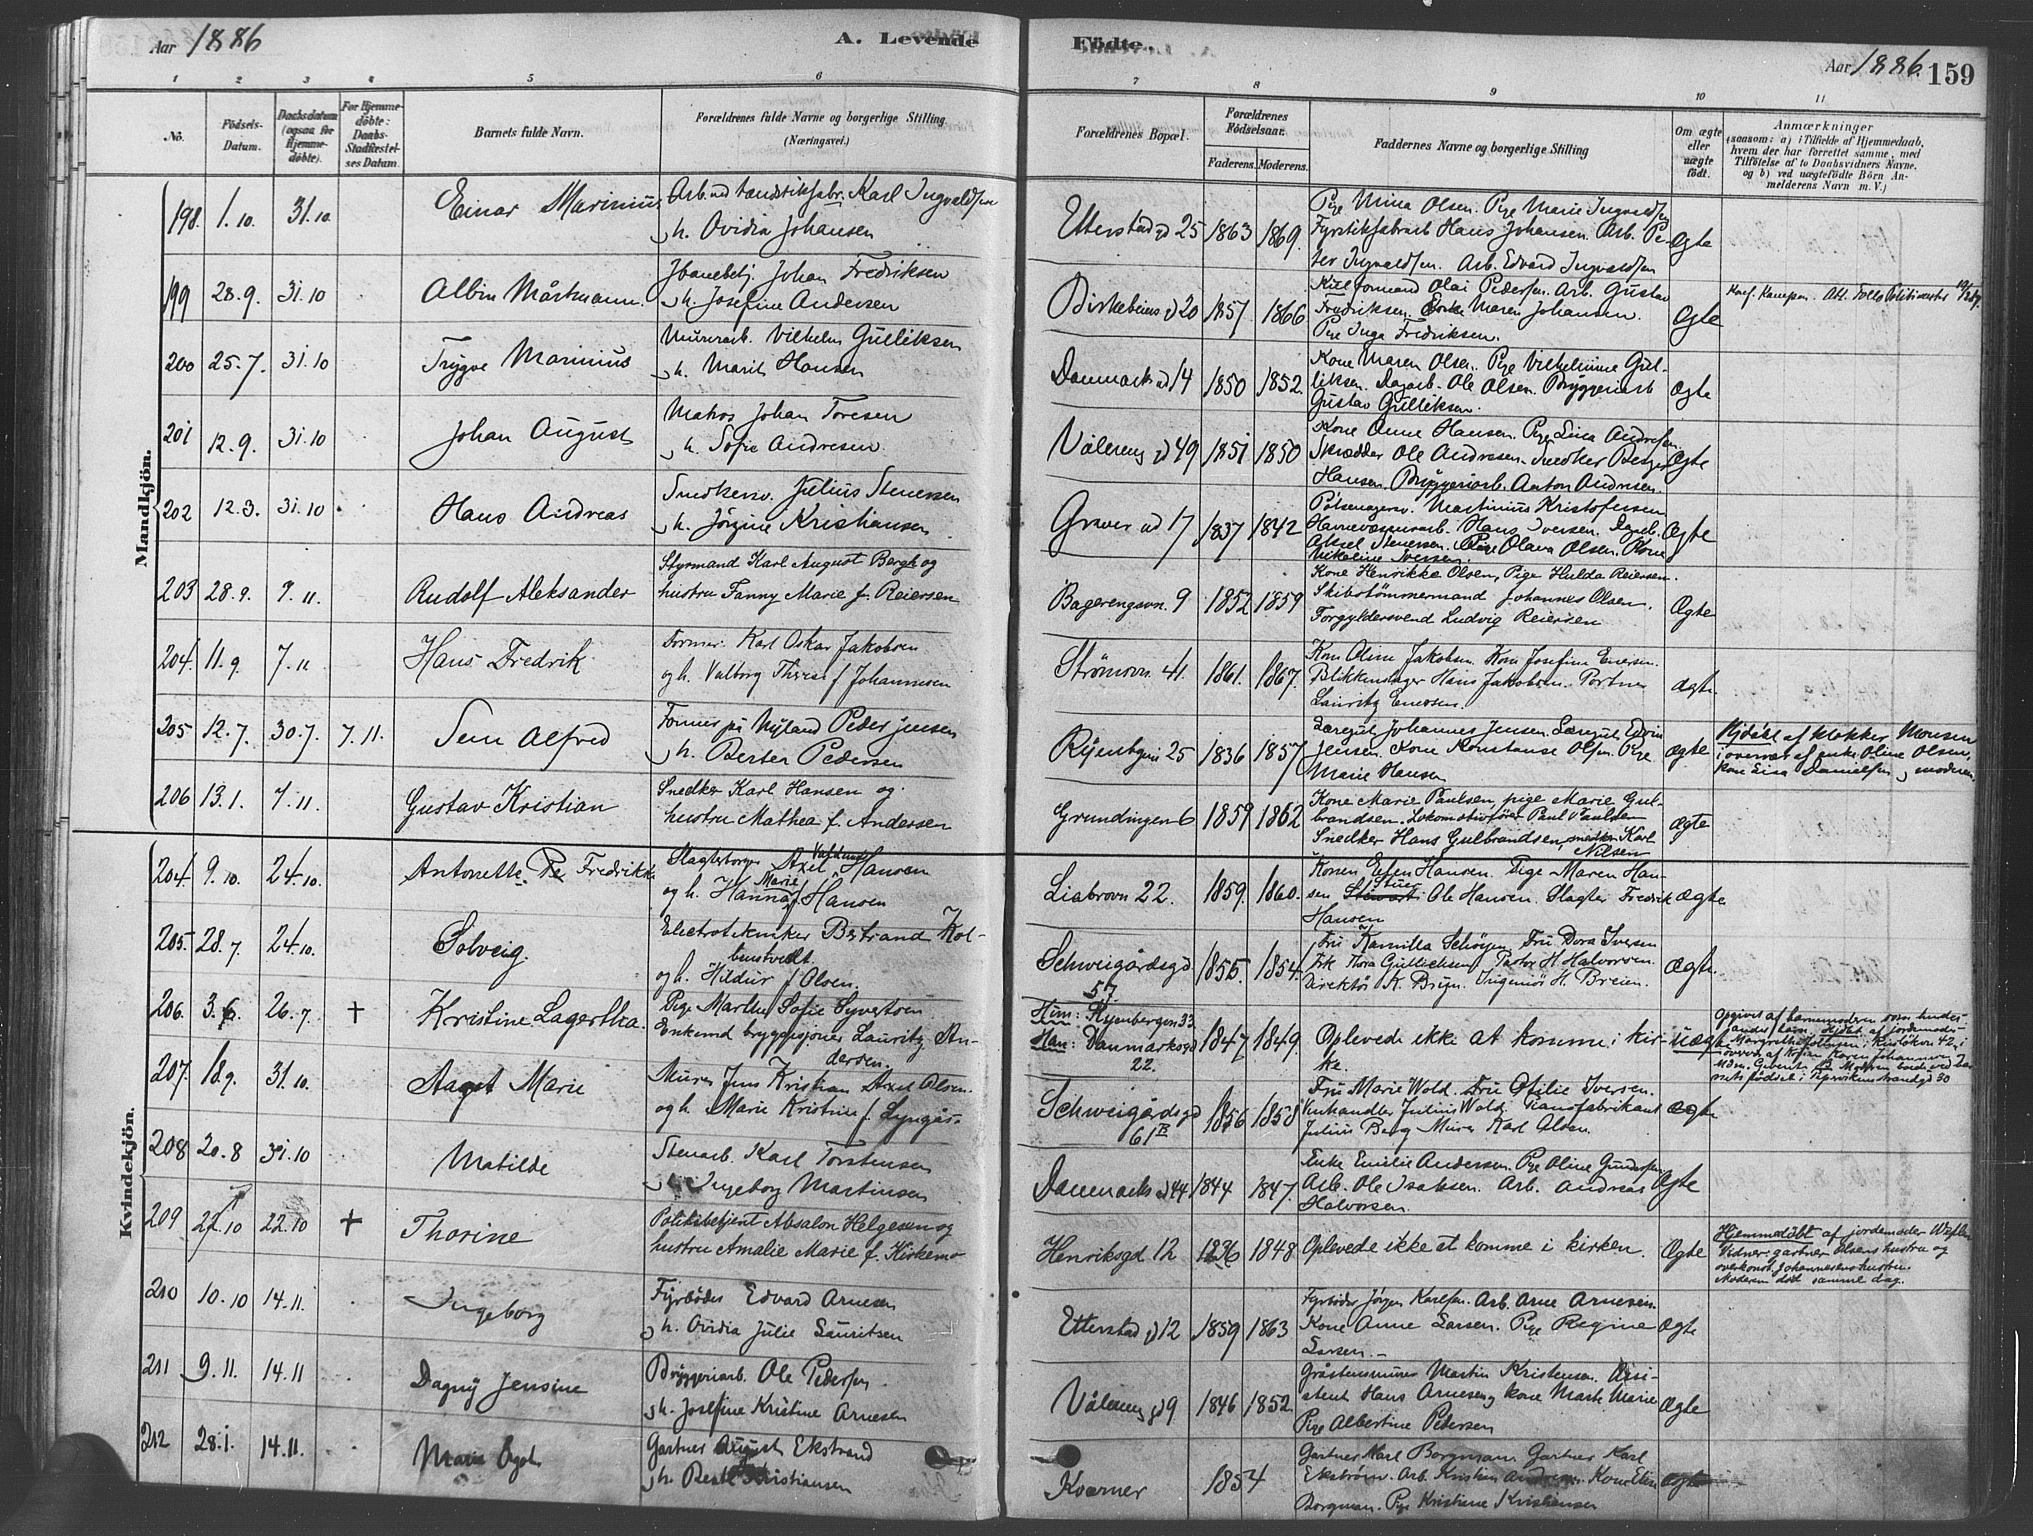 Aar 1886
A. Levende
1 2 3 4 5 6
No.
Födsels-
Datum.
Daabsdatum
(ogsaa for
Hjemme-
döbte).
For Hjemme-
döbte:
Daabs-
Stadfæstel-
ses Datum.
Barnets fulde Navn.
Forældrenes fulde Navne og borgerlige Stilling
(Næringsvei.)
Mandkjön.
198. 1.10. 31.10 Einar Marinius
Karl Ingvaldsen
h. Ovidia Johansen
199 28.9. 31.10 Albin
Johan Fredriksen
h. Josefine Andersen
200 25.7. 31.10 Trygve Marinius
Murerarb. Vilhelm Gulliksen
h. Marit Hansen
201 12.9. 31.10 Johan August
Matros Johan Toresen
h. Sofie Andresen
202 12.3. 31.10 Hans Andreas
Snedkersv. Julius Stenersen
h. Jörgine Kristiansen
203 28.9. 7.11. Rudolf Aleksander
Styrmand Karl August Bergh og
hustru Fanny Marie f. Reiersen
204. 11.9 7.11 Hans Fredrik
Former Karl Oskar Jakobsen
og h. Valborg f. Johannesen
205 12.7. 30.7. 7.11. Alfred
Former på Nyland Peder Jensen
h. Berte Pedersen
206 13.1. 7.11. Gustav Kristian
Snedker Karl Hansen og
hustru Mathea f. Andersen
Kvindekjön.
204. 9.10. 24.10. Antonette Fredrikke
Axel Valdemar Hansen
og h. Hanna Marie f. Hansen
205. 28.7 24.10. Solveig.
Electrotekniker Bertrand Kol-
benstvedt.
og h. Hildur f. Olsen.
206. 3.6. 26.7 † Kristine Lagertha.
Pige Marthe Sofie Syvertsen
Enkemd bryggeisjouer Lauritz An-
dersen.
207. 18.9. 31.10. Aagot Marie
Murer Jens Kristian Axel Olsen
og h. Marie Kristine f. Lyngås.
208 20.8 31.10 Matilde
Stenarb. Karl Torstensen
Ingeborg Martinsen
209 22.10 22.10 † Thorine
Politibetjent Absalon Helgesen og
hustru Amalie Marie f. Kirkemo
210 10.10 14.11. Ingeborg
Fyrbøder Edvard Arnesen
h. Ovidia Julie Lauritsen
211 9.11. 14.11 Dagny Jensine
Bryggeriarb. Ole Pedersen
h. Josefine Kristine Arnesen
212 28.1. 14.11. Maria
Gartner August Ekstrand
h. Kristiansen
Födte.
Aar 1886. 159
7 8 9 10 11
Forældrenes Bopæl.
Forældrenes
Födselsaar.
Faderens. Moderens.
Faddernes Navne og borgerlige Stilling
Om ægte
eller
uægte
födt.
Anmærkninger
(saasom: a) i Tilfælde af Hjemmedaab,
hvem der har forrettet samme, med
Tilföielse af to Daabsvidners Navne,
og b) ved uægtefödte Börn An-
melderens Navn m. V.)
Pige Mina Olsen. Pige Marie Ingvaldsen
Etterstad gd 25 1863 1869. Fyrstikfabrarb Hans Johansen. Arb. Pe- Ægte
ter Ingvaldsen. Arb. Edvard Ingvaldsen
Olai Pedersen. Arb. Gustav
Birkebeiner gd 20 1857. 1866 Fredriksen. Enke Maren Johansen. Ægte
Pige Inga Fredriksen.
Kone Maren Olsen. Pige Vilhelmine Gul-
Danmarks gd 14 1850 1852. liksen. Dagarb. Ole Olsen. Bryggeriarb Ægte
Gustav Gulliksen.
Kone Anne Hansen. Pige Lina Andresen.
Vålereng gd 49 1851 1850 Skrædder Ole Andresen. Snedker Berger Ægte
Hansen. Bryggeriarb. Anton Andresen.
Pølsemagersv. Martinius Kristofersen
Graver gd 17 1837 1842 Havnevæsenarb. Hans Iversen. Dagarb. Ægte
Aksel Stenersen. Pige Olava Olsen. Kone
Nikoline Iversen.
Kone Henrikke Olsen, Pige Hulda Reiersen.
Bagerengvn. 9 1852 1859 Skibstømmermand Johannes Olsen. Ægte
Forgyldersvend Ludvig Reiersen
Kone Oline Jakobsen. Kone Josefine Enersen.
Strømsvn. 41. 1861. 1867. Blikkenslager Hans Jakobsen. Portner ægte
Lauritz Enersen.
Læregut Johannes Jensen. Læregut Edvin
Ryenbgn 25 1836 1857 Jensen. Kone Konstanse Olsen. Pige ægte
Marie Hansen
Hjdøbt af klokker Monsen
i overvær af enke Oline Olsen,
kone Lisa Danielsen og moderen
Kone Marie Paulsen, pige Marie Gul-
Grundingen 6 1859 1862 brandsen. Lokomotivfører Paul Paulsen ægte
Snedker Hans Gulbrandsen, snedker Karl
Nilsen
Konen Hansen. Pige Maren Han-
Liabrovn 22. 1859. 1860. sen Ole Hansen. Slagter Fredrik ægte
Hansen
Fru Kamilla Schøyen, Fru Dora Iversen
Schweigårdsgd 57. 1855. 1854. Frk Thora Gullichsen, Pastor H Halvorsen. ægte
Direktør K. Bryn. Ingeniør H. Breien.
Hun: Ryenbergvn 33
Man: Danmarksgd 22. 1847 1849. Oplevede ikke at komme i kir-
ke. uægte
Opgives af barnemoderen som hendes
andet barn. Hjdbt. af jordemoder
Fru Marie Wold. Fru Otilie Iversen.
Schweigårdsgd 61B 1856 1858 Vinhandler Julius Wold. Pianofabrikant ægte
Julius Berg Murer Karl Olsen.
Enke Emilie Andersen. Pige Oline Gundersen
Danmarks gd 44. 1844 1847. Arb. Ole Isaksen. Arb. Andreas Ægte
Halvorsen.
Henriksgd 12 1836 1848 Oplevede ikke at komme i kirken. Ægte
Hjemmedöbt af jordemoder
Vidner: gartner Olsens hustru og
overkonst. Johannesens hustru.
Moderen död samme dag.
Fyrbøder Jørgen Karlsen. Arb. Arne Arnesen.
Etterstad gd 12 1859 1863 Kone Anne Larsen. Pige Regine Ægte
Larsen.
Gråstensmurer Martin Kristensen. Assi-
Vålereng gd 9 1846 1852. stent Hans Arnesen, kone Marte Marie Ægte
Pige Albertine Pedersen
Gartner Karl Borgman Gartner Karl
Kværner 1854 Ekstrøm. Arb. Kristian Andresen. Kone Elise ægte
Borgman. Pige Kristine Kristiansen